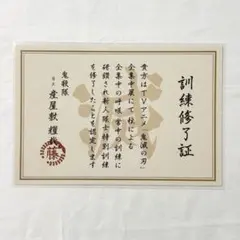 訓練修了証
貴方はTVアニメ「鬼滅の刃」
全集中展にて柱による
全集中の呼吸・常中の訓練に
研鑽され新人隊士特別訓練
を修了したことを認定します
鬼殺隊
当主 産屋敷耀哉
藤